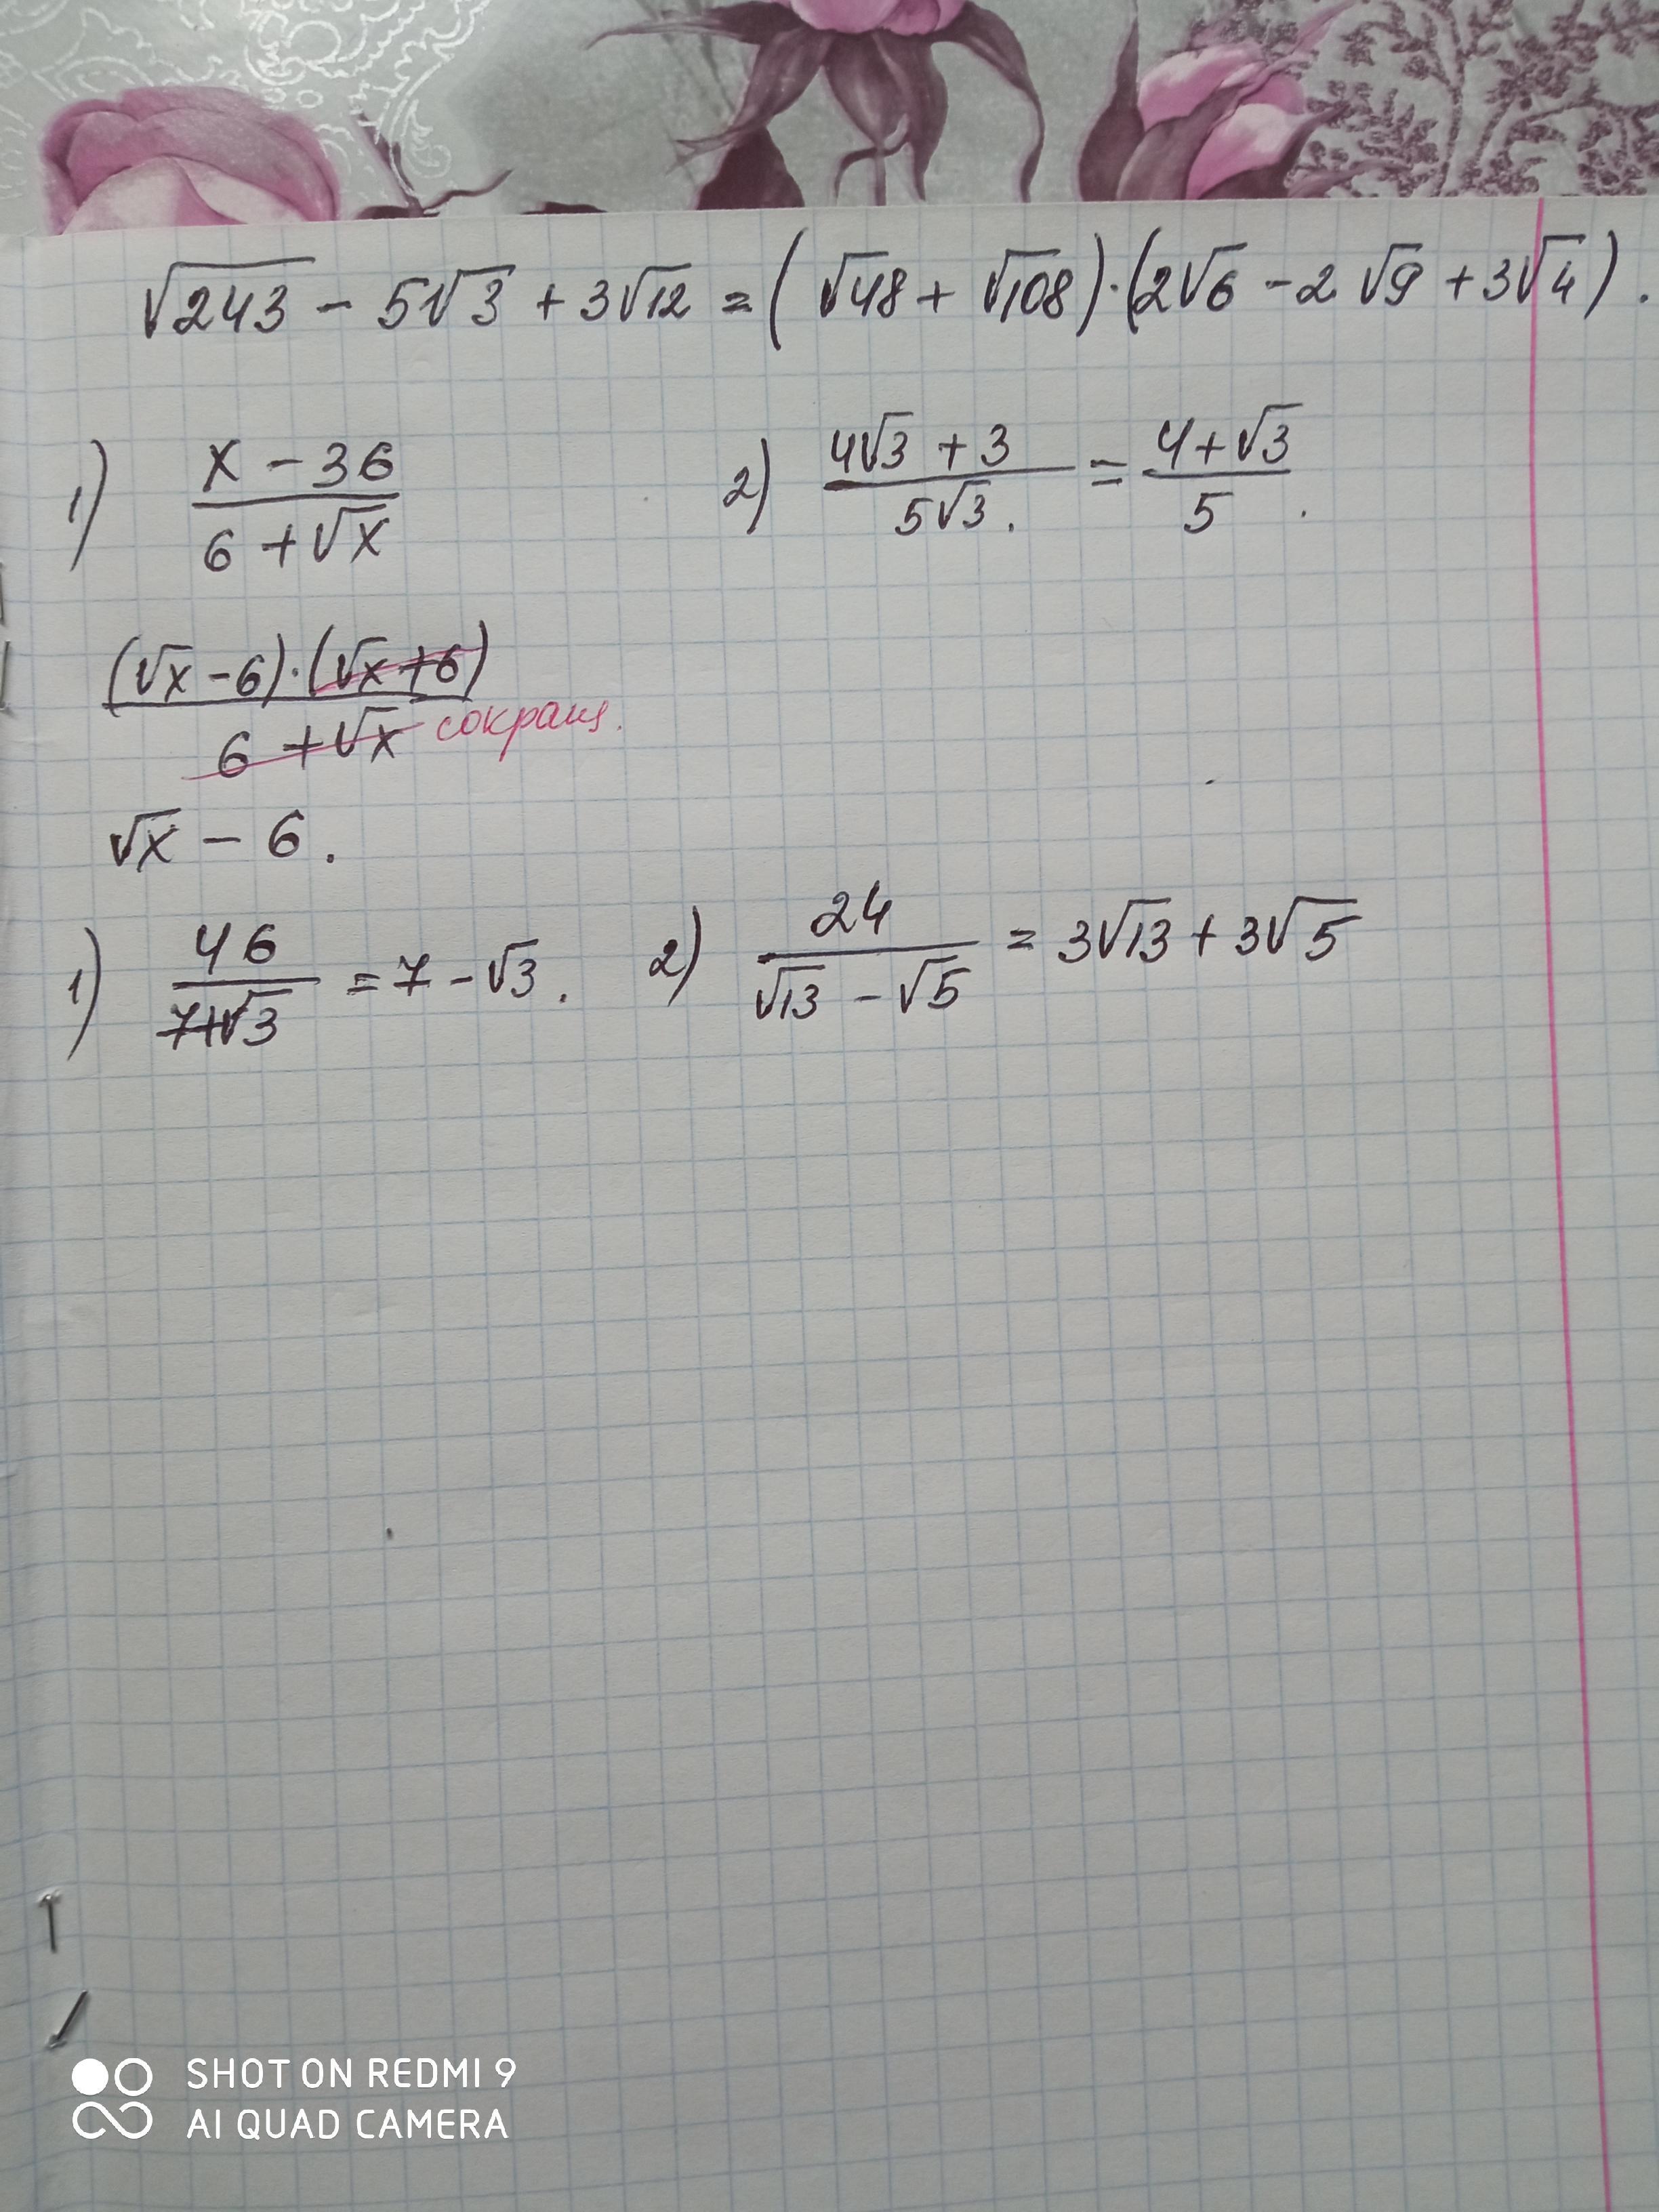 √243 - 5√3 + 3√12 = (√48 + √108)·(2√6 - 2√9 + 3√4).
1) (x - 36)/(6 + √x) 2) (4√3 + 3)/(5√3). = (4 + √3)/5.
((√x - 6)·(√x + 6))/(6 + √x) сокращ.
√x - 6.
1) 46/(7+√3) = 7 - √3. 2) 24/(√13 - √5) = 3√13 + 3√5
SHOT ON REDMI 9
AI QUAD CAMERA